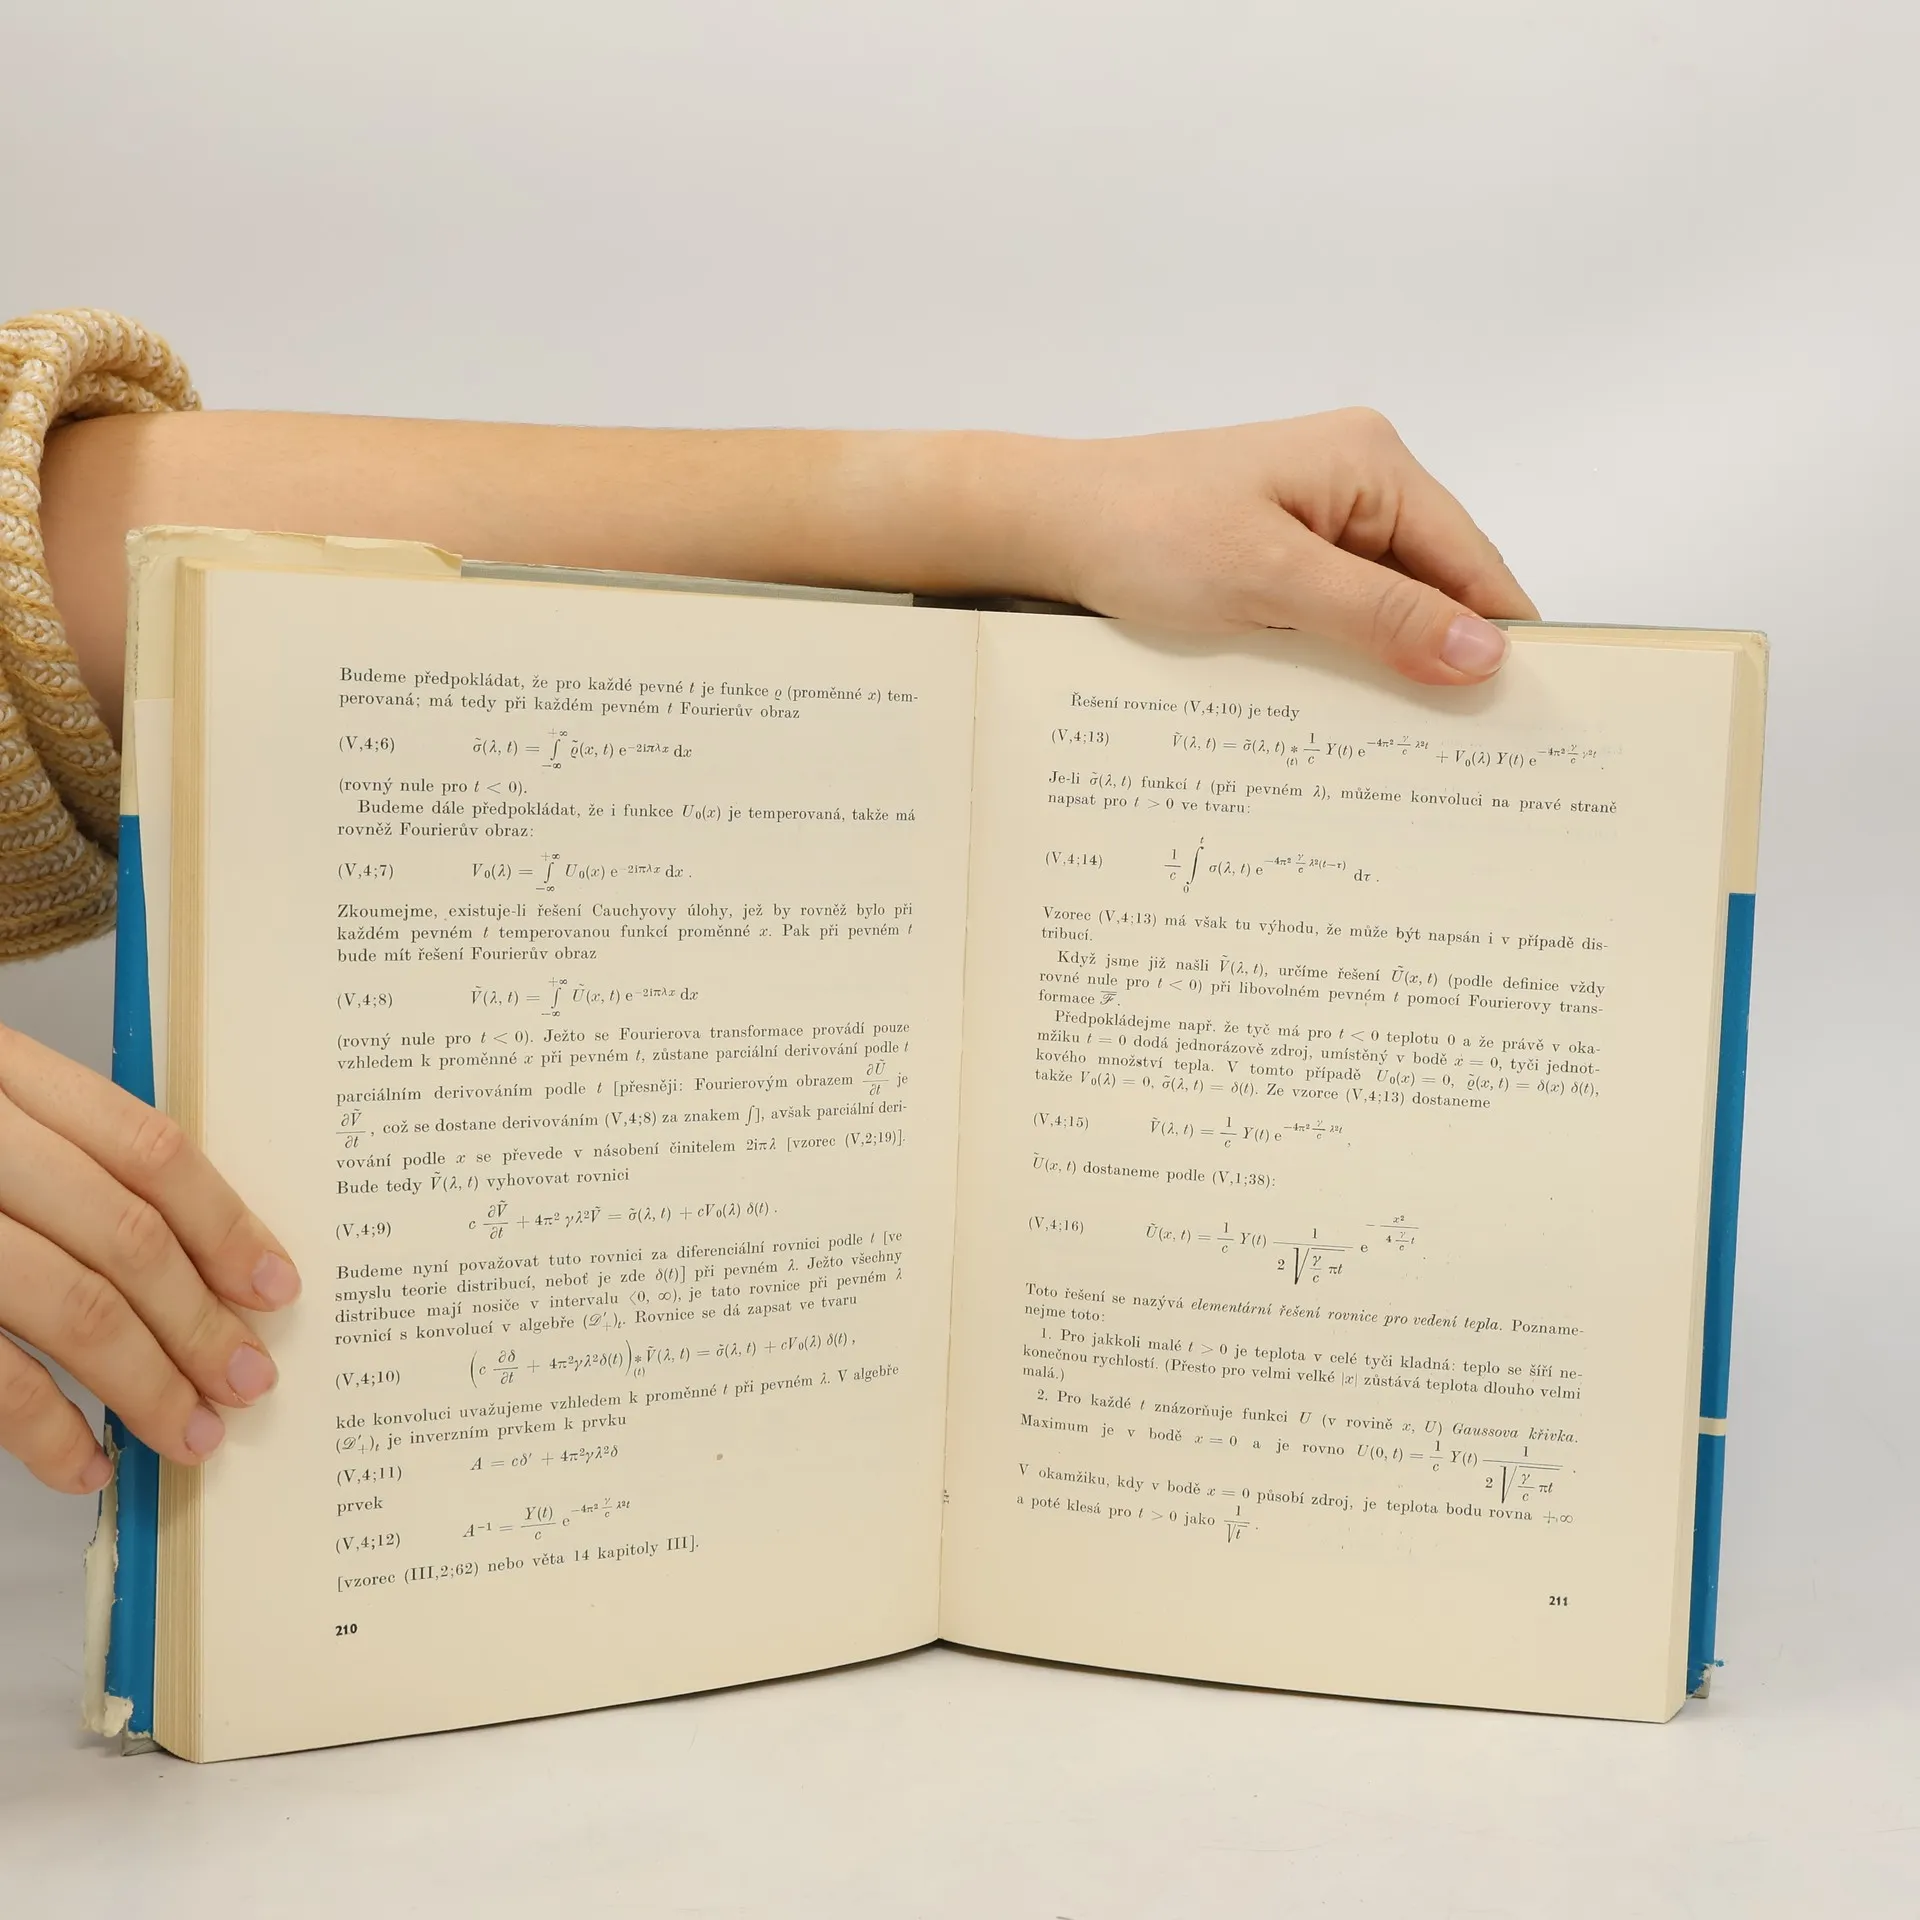 Budeme předpokládat, že pro každé pevné t je funkce ϱ (proměnné x) tem-
perovaná; má tedy při každém pevném t Fourierův obraz
(V,4;6) σ̃(λ, t) = ∫_{−∞}^{+∞} ϱ̃(x, t) e^{−2iπλx} dx
(rovný nule pro t < 0).
Budeme dále předpokládat, že i funkce U₀(x) je temperovaná, takže má
rovněž Fourierův obraz:
(V,4;7) V₀(λ) = ∫_{−∞}^{+∞} U₀(x) e^{−2iπλx} dx .
Zkoumejme, existuje-li řešení Cauchyovy úlohy, jež by rovněž bylo při
každém pevném t temperovanou funkcí proměnné x. Pak při pevném t
bude mít řešení Fourierův obraz
(V,4;8) Ṽ(λ, t) = ∫_{−∞}^{+∞} Ũ(x, t) e^{−2iπλx} dx
(rovný nule pro t < 0). Ježto se Fourierova transformace provádí pouze
vzhledem k proměnné x při pevném t, zůstane parciální derivování podle t
parciálním derivováním podle t [přesněji: Fourierovým obrazem ∂Ũ/∂t je
∂Ṽ/∂t , což se dostane derivováním (V,4;8) za znakem ∫], avšak parciální deri-
vování podle x se převede v násobení činitelem 2iπλ [vzorec (V,2;19)].
Bude tedy Ṽ(λ, t) vyhovovat rovnici
(V,4;9) c ∂Ṽ/∂t + 4π² γλ²Ṽ = σ̃(λ, t) + cV₀(λ) δ(t) .
Budeme nyní považovat tuto rovnici za diferenciální rovnici podle t [ve
smyslu teorie distribucí, neboť je zde δ(t)] při pevném λ. Ježto všechny
distribuce mají nosiče v intervalu ⟨0, ∞), je tato rovnice při pevném λ
rovnicí s konvolucí v algebře (𝒟′₊)ₜ. Rovnice se dá zapsat ve tvaru
(V,4;10) (c ∂δ/∂t + 4π²γλ²δ(t)) *_{(t)} Ṽ(λ, t) = σ̃(λ, t) + cV₀(λ) δ(t) ,
kde konvoluci uvažujeme vzhledem k proměnné t při pevném λ. V algebře
(𝒟′₊)ₜ je inverzním prvkem k prvku
(V,4;11) A = cδ′ + 4π²γλ²δ
prvek
(V,4;12) A⁻¹ = Y(t)/c e^{−4π² γ/c λ²t}
[vzorec (III,2;62) nebo věta 14 kapitoly III].
210
Řešení rovnice (V,4;10) je tedy
(V,4;13) Ṽ(λ, t) = σ̃(λ, t) *_{(t)} 1/c Y(t) e^{−4π² γ/c λ²t} + V₀(λ) Y(t) e^{−4π² γ/c γ²t} .
Je-li σ̃(λ, t) funkcí t (při pevném λ), můžeme konvoluci na pravé straně
napsat pro t > 0 ve tvaru:
(V,4;14) 1/c ∫_{0}^{t} σ(λ, t) e^{−4π² γ/c λ²(t−τ)} dτ .
Vzorec (V,4;13) má však tu výhodu, že může být napsán i v případě dis-
tribucí.
Když jsme již našli Ṽ(λ, t), určíme řešení Ũ(x, t) (podle definice vždy
rovné nule pro t < 0) při libovolném pevném t pomocí Fourierovy trans-
formace ℱ̅.
Předpokládejme např. že tyč má pro t < 0 teplotu 0 a že právě v oka-
mžiku t = 0 dodá jednorázově zdroj, umístěný v bodě x = 0, tyči jednot-
kového množství tepla. V tomto případě U₀(x) = 0, ϱ̃(x, t) = δ(x) δ(t),
takže V₀(λ) = 0, σ̃(λ, t) = δ(t). Ze vzorce (V,4;13) dostaneme
(V,4;15) Ṽ(λ, t) = 1/c Y(t) e^{−4π² γ/c λ²t} ,
Ũ(x, t) dostaneme podle (V,1;38):
(V,4;16) Ũ(x, t) = 1/c Y(t) 1/(2 √(γ/c πt)) e^{−x²/(4 γ/c t)} .
Toto řešení se nazývá elementární řešení rovnice pro vedení tepla. Pozname-
nejme toto:
1. Pro jakkoli malé t > 0 je teplota v celé tyči kladná: teplo se šíří ne-
konečnou rychlostí. (Přesto pro velmi velké |x| zůstává teplota dlouho velmi
malá.)
2. Pro každé t znázorňuje funkci U (v rovině x, U) Gaussova křivka.
Maximum je v bodě x = 0 a je rovno U(0, t) = 1/c Y(t) 1/(2 √(γ/c πt)) .
V okamžiku, kdy v bodě x = 0 působí zdroj, je teplota bodu rovna +∞
a poté klesá pro t > 0 jako 1/√t .
211